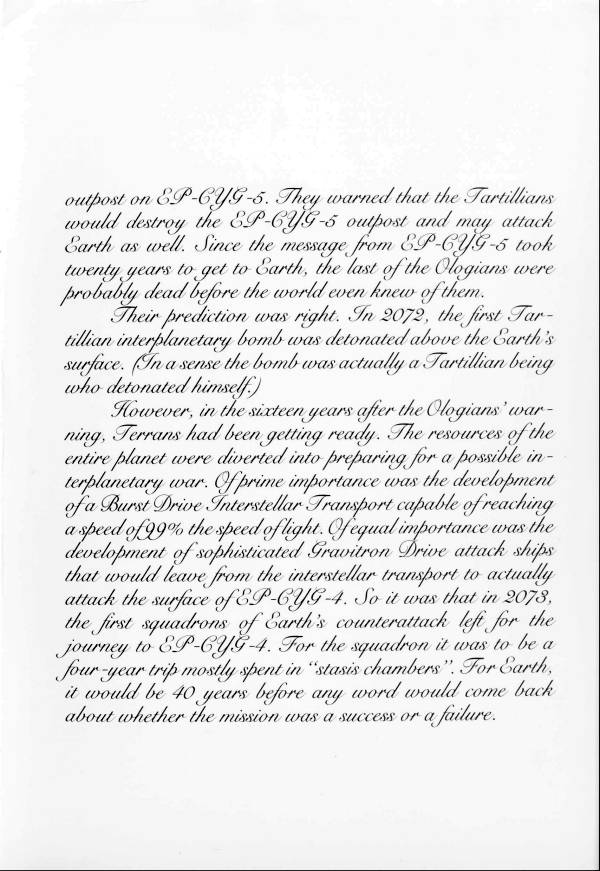 outpost on EP-CYG-5. They warned that the Tartillians
would destroy the EP-CYG-5 outpost and may attack
Earth as well. Since the message from EP-CYG-5 took
twenty years to get to Earth, the last of the Ologians were
probably dead before the world even knew of them.
Their prediction was right. In 2072, the first Tar-
tillian interplanetary bomb was detonated above the Earth's
surface. (In a sense the bomb was actually a Tartillian being
who detonated himself.)
However, in the sixteen years after the Ologians' war-
ning, Terrans had been getting ready. The resources of the
entire planet were diverted into preparing for a possible in-
terplanetary war. Of prime importance was the development
of a Burst Drive Interstellar Transport capable of reaching
a speed of 99% the speed of light. Of equal importance was the
development of sophisticated Gravitron Drive attack ships
that would leave from the interstellar transport to actually
attack the surface of EP-CYG-4. So it was that in 2073,
the first squadrons of Earth's counterattack left for the
journey to EP-CYG-4. For the squadron it was to be a
four-year trip mostly spent in "stasis chambers". For Earth,
it would be 40 years before any word would come back
about whether the mission was a success or a failure.